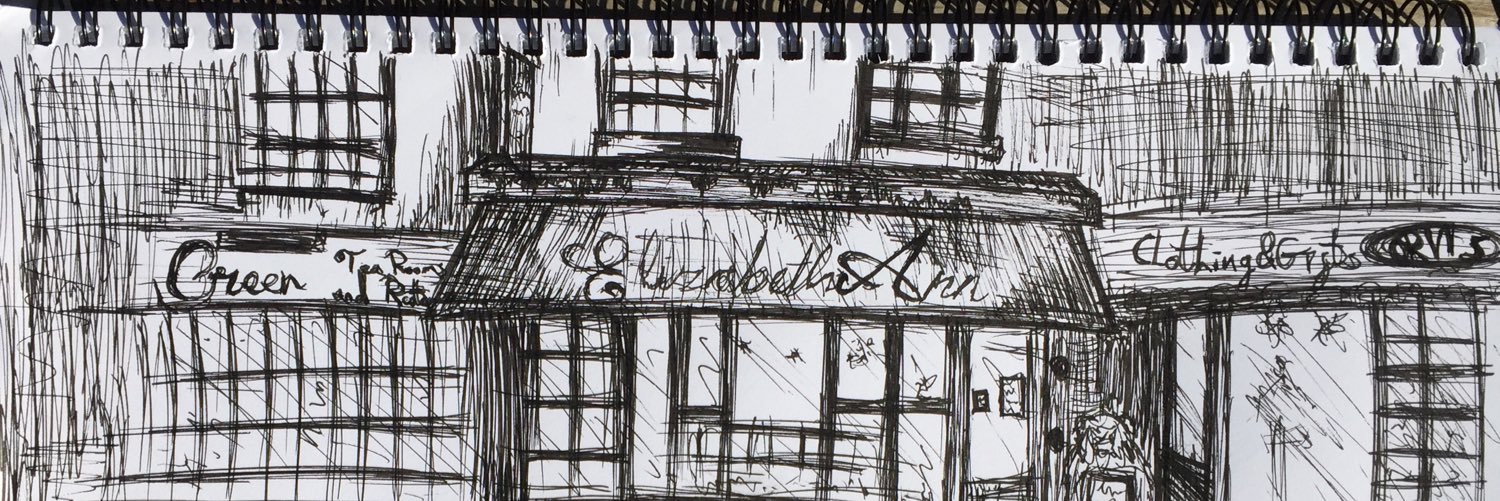 Green
Tea Room
and
Elizabeth Ann
Clothing & Gifts
ORVIS